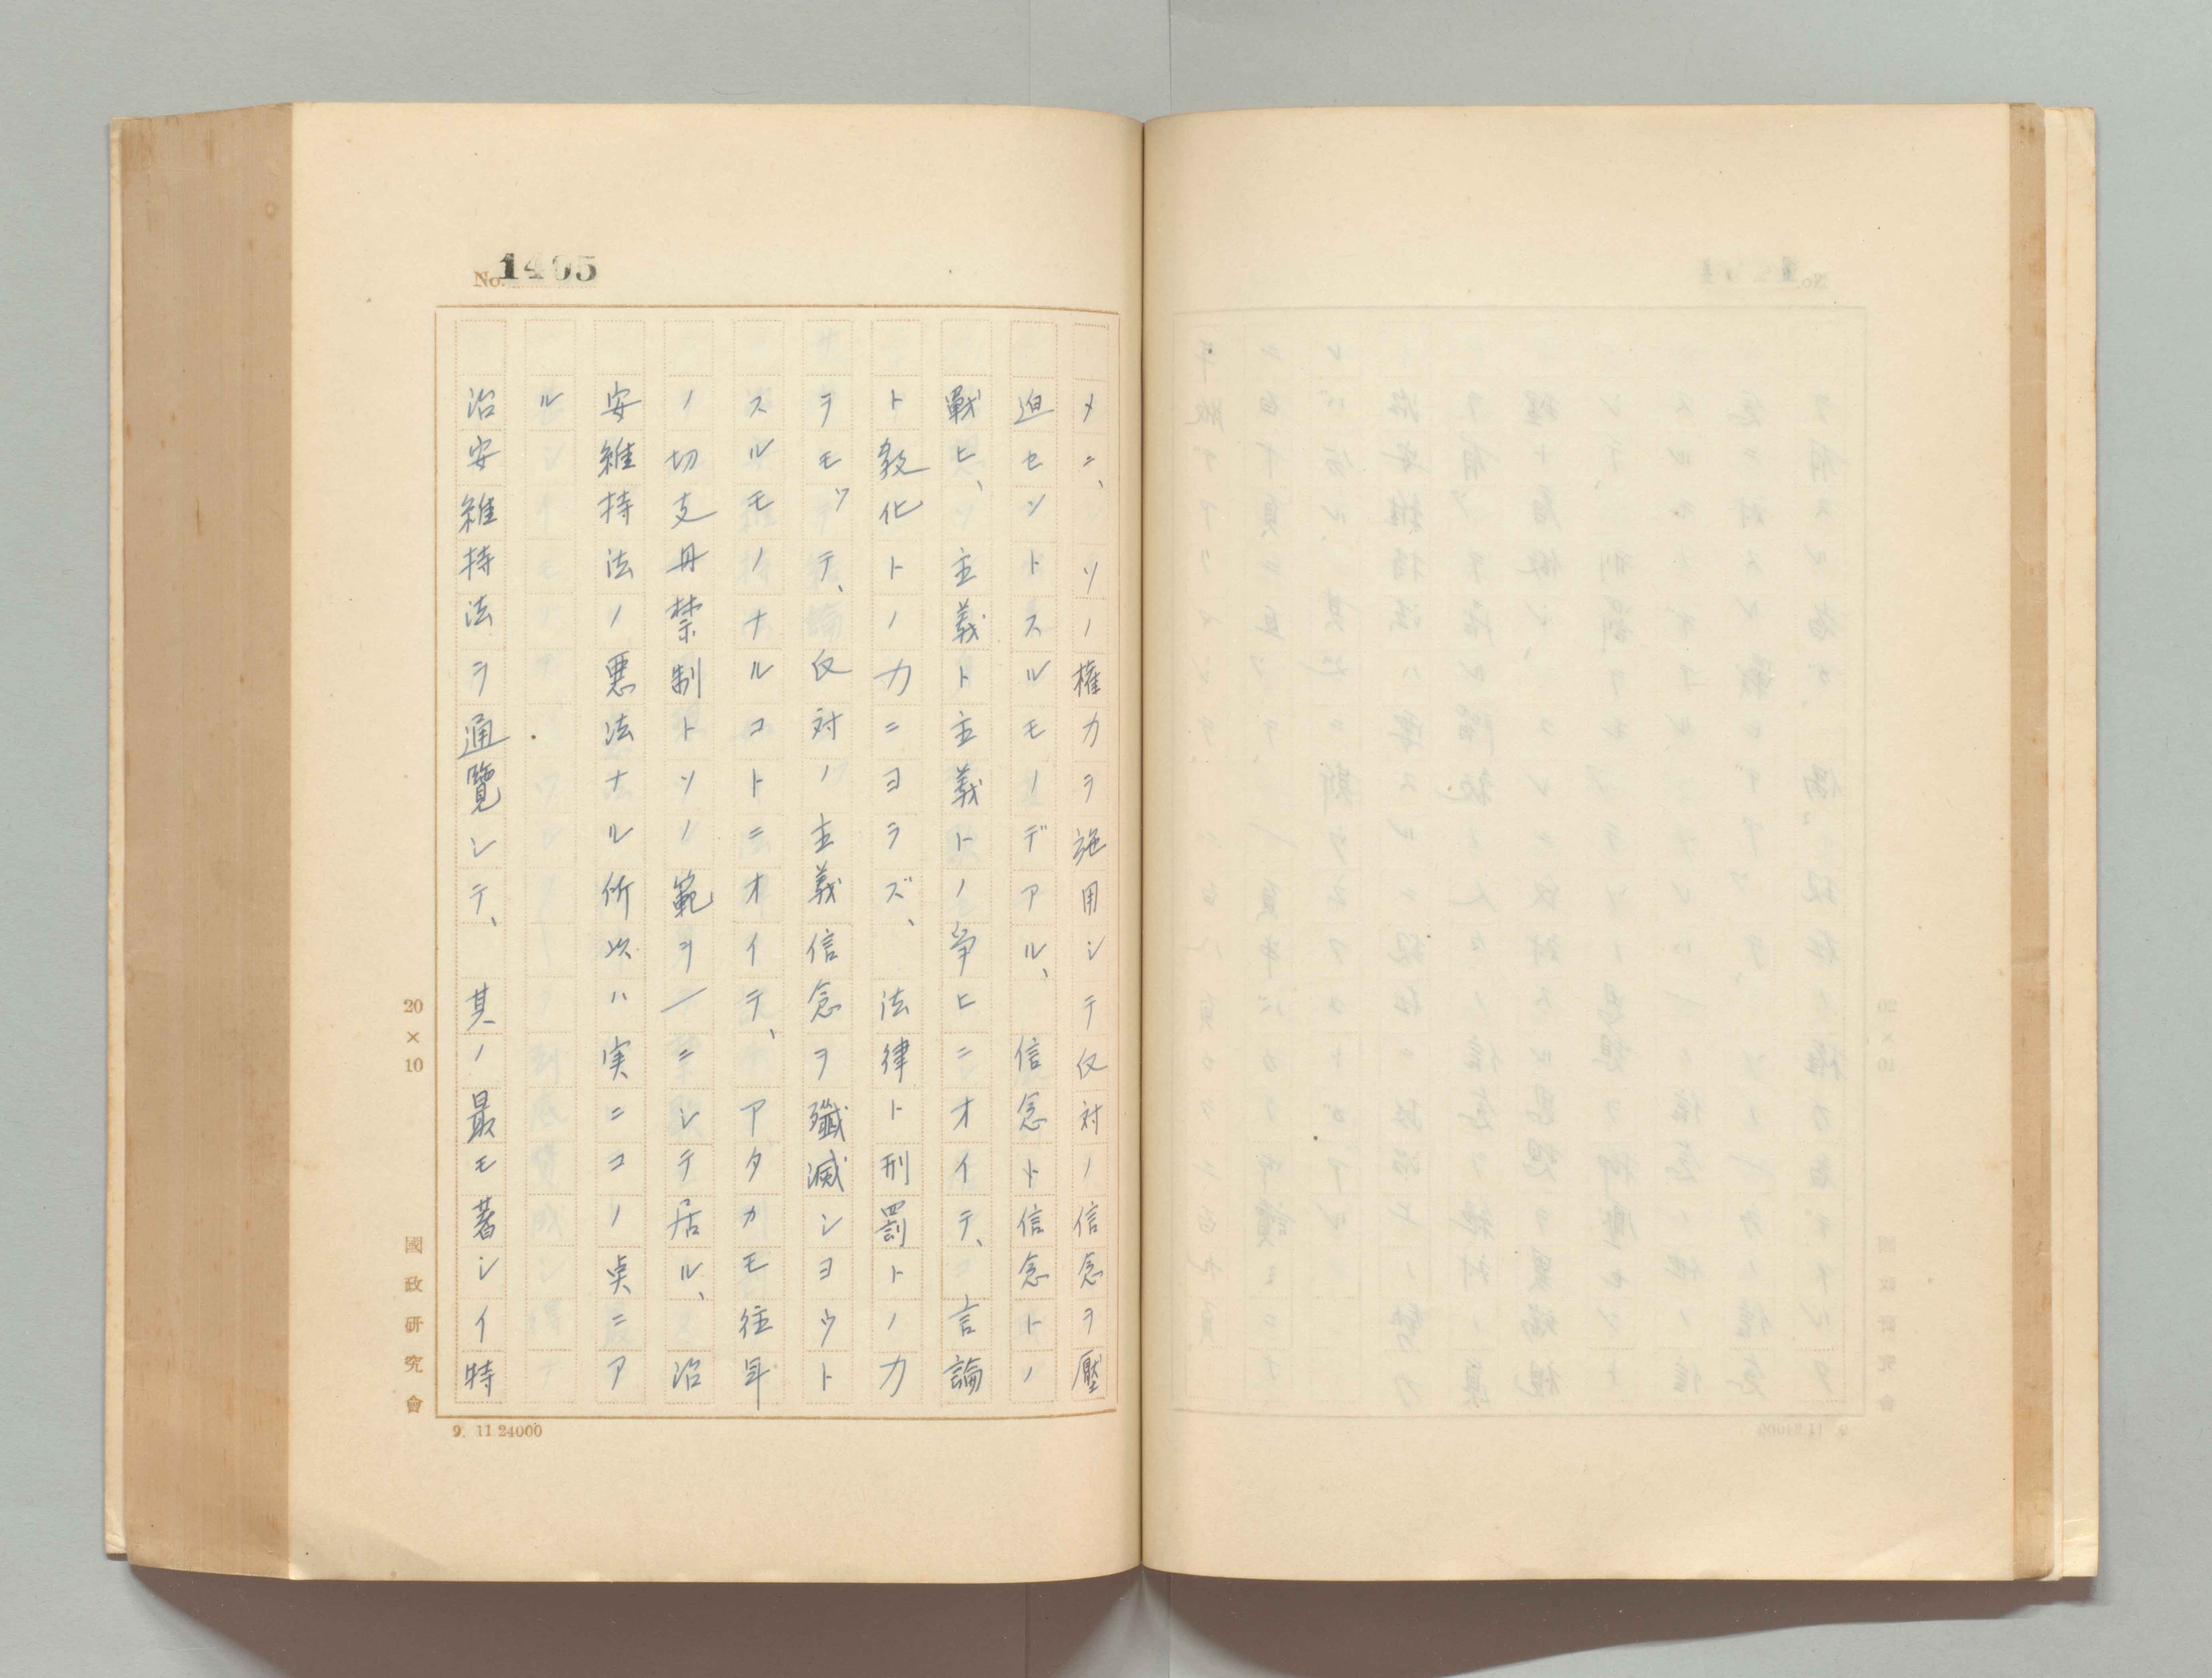 No. 1405
メニ、ソノ権力ヲ施用シテ反対ノ信念ヲ壓
迫セントスルモノデアル、信念ト信念トノ
戰ヒ、主義ト主義トノ争ヒニオイテ、言論
ト教化トノ力ニヨラズ、法律ト刑罰トノ力
ヲモツテ、反対ノ主義信念ヲ殲滅シヨウト
スルモノナルコトニオイテ、アタカモ往年
ノ切支丹禁制トソノ範ヲ一ニシテ居ル、治
安維持法ノ悪法ナル所以ハ実ニコノ点ニア
ル
治安維持法ヲ通覽シテ、其ノ最モ著シイ特
20×10
國政研究會
9. 11 24000